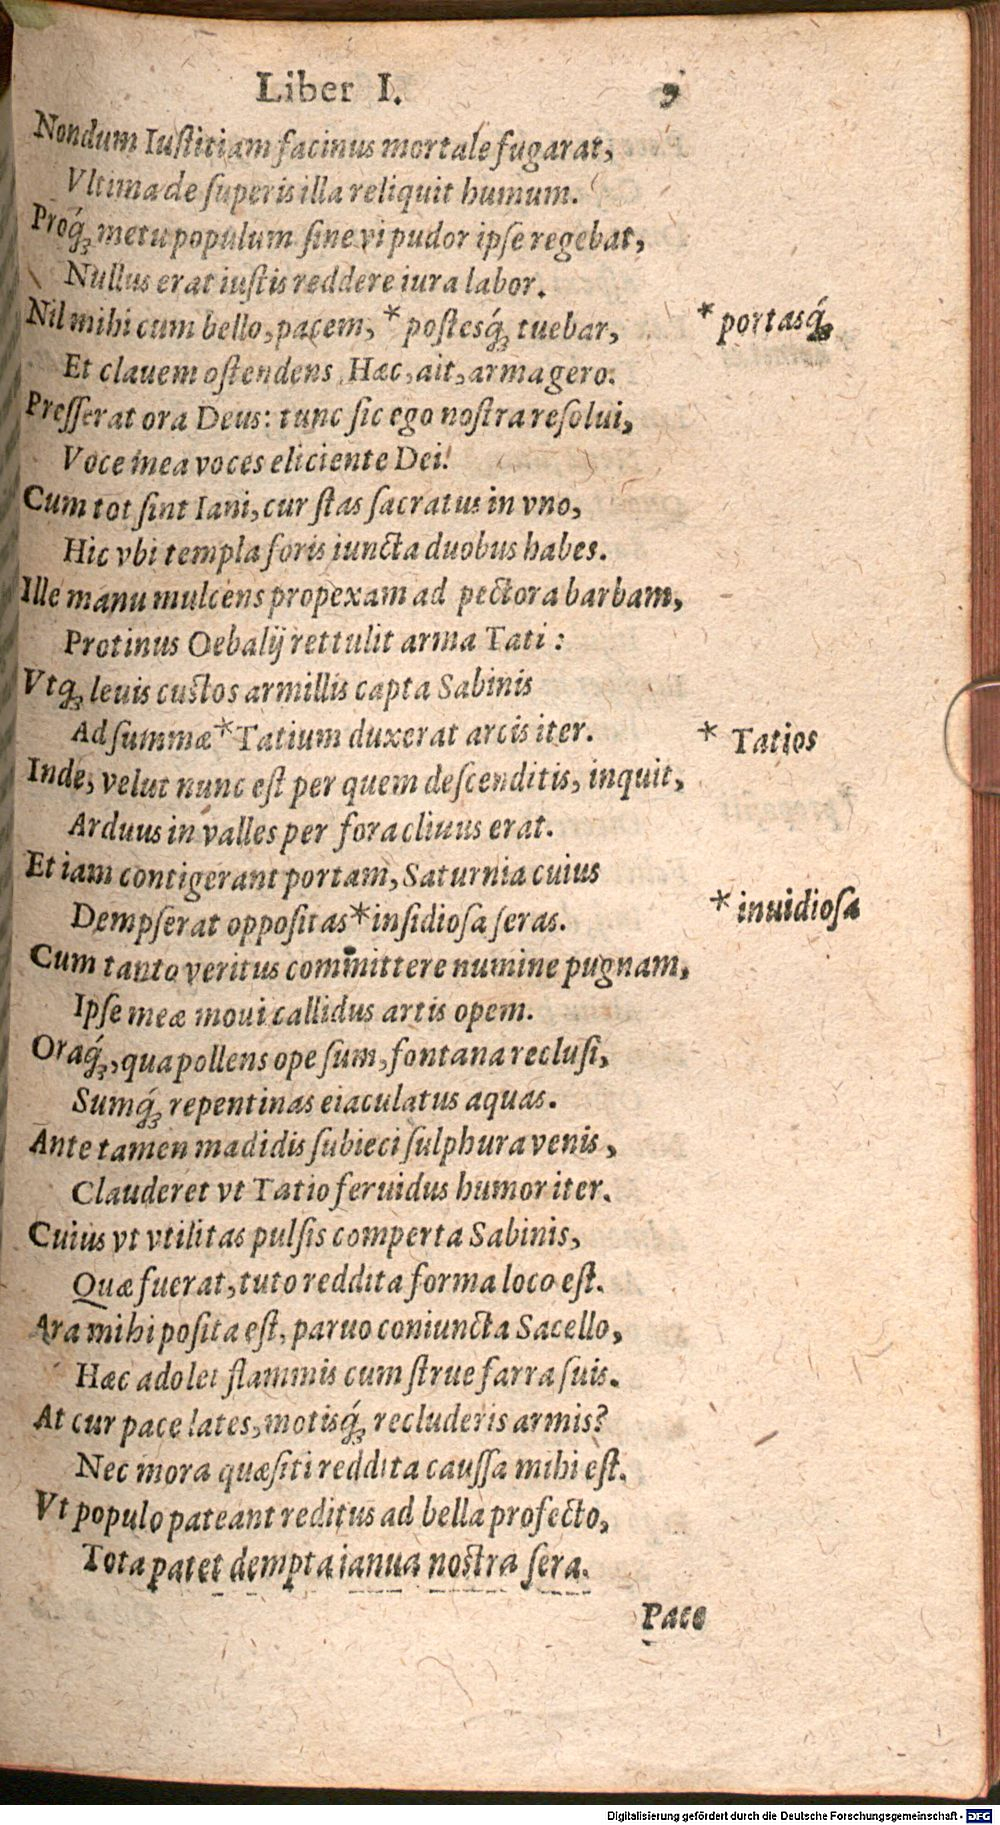 Liber I. 9
Nondum Iuſtitiam facinus mortale fugarat,
Vltima de ſuperis illa reliquit humum.
Proq́; metu populum ſine vi pudor ipſe regebat,
Nullus erat iuſtis reddere iura labor.
Nil mihi cum bello, pacem, * poſtesq́; tuebar, * portasq́;
Et clauem oſtendens, Hæc, ait, arma gero.
Preſſerat ora Deus: tunc ſic ego noſtra reſolui,
Voce mea voces eliciente Dei.
Cum tot ſint Iani, cur ſtas ſacratus in vno,
Hic vbi templa foris iuncta duobus habes.
Ille manu mulcens propexam ad pectora barbam,
Protinus Oebalij rettulit arma Tati:
Vtq; leuis cuſtos armillis capta Sabinis
Ad ſummæ * Tatium duxerat arcis iter. * Tatios
Inde, velut nunc eſt per quem deſcenditis, inquit,
Arduus in valles per fora cliuus erat.
Et iam contigerant portam, Saturnia cuius
Dempſerat oppoſitas * inſidioſa ſeras. * inuidioſa
Cum tanto veritus committere numine pugnam,
Ipſe meæ moui callidus artis opem.
Oraq́;, qua pollens ope ſum, fontana recluſi,
Sumq́; repentinas eiaculatus aquas.
Ante tamen madidis ſubieci ſulphura venis,
Clauderet vt Tatio feruidus humor iter.
Cuius vt vtilitas pulſis comperta Sabinis,
Quæ fuerat, tuto reddita forma loco eſt.
Ara mihi poſita eſt, paruo coniuncta Sacello,
Hæc adolet flammis cum ſtrue farra ſuis.
At cur pace lates, motisq́; recluderis armis?
Nec mora quæſiti reddita cauſſa mihi eſt.
Vt populo pateant reditus ad bella profecto,
Tota patet dempta ianua noſtra ſera.
Pace
Digitalisierung gefördert durch die Deutsche Forschungsgemeinschaft - DFG